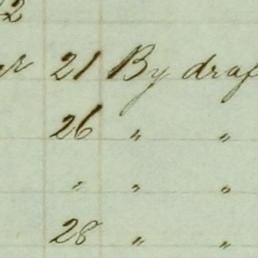 2
21 By draf
26 " "
" " "
28 " "